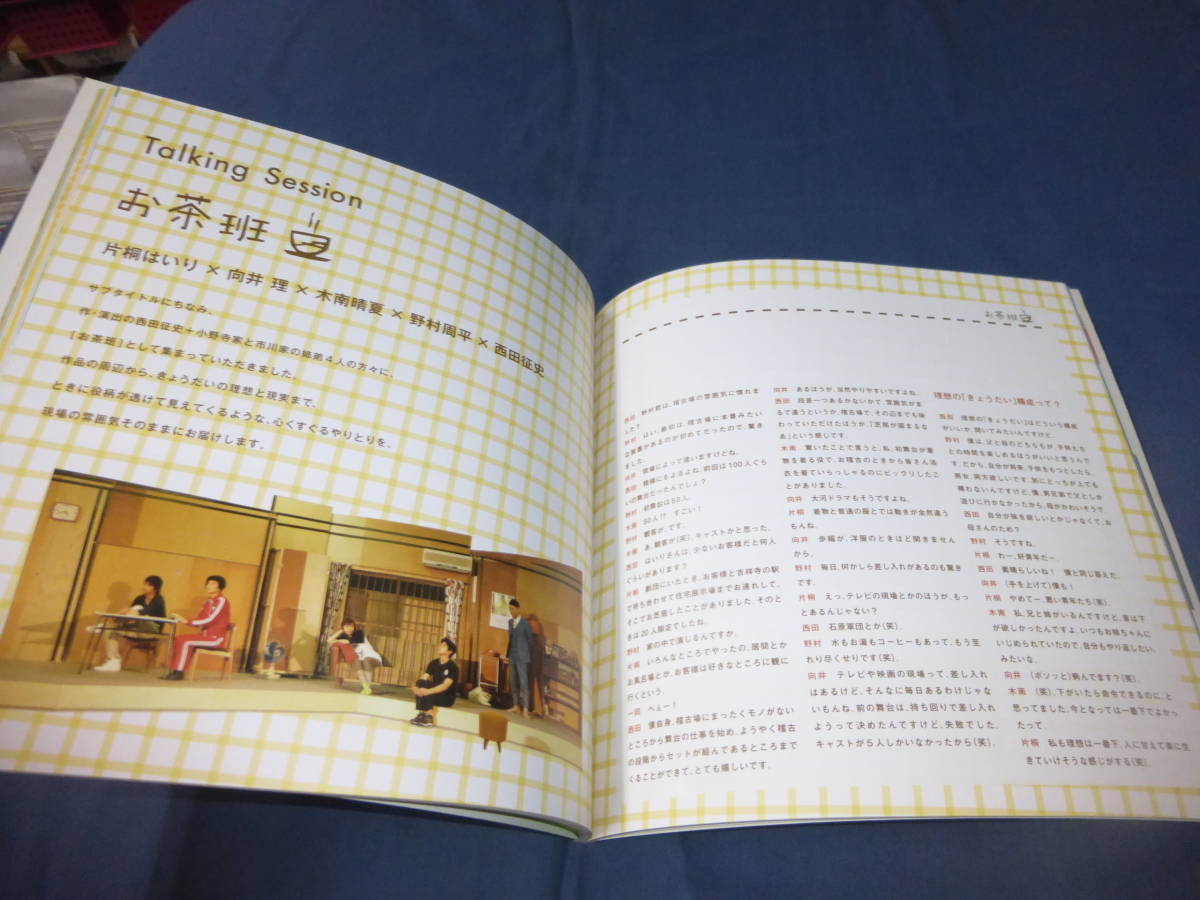 Talking Session
お茶班
片桐はいり×向井 理×木南晴夏×野村周平×西田征史
サブタイトルにちなみ、
作・演出の西田征史+小野寺家と市川家の姉弟4人の方々に、
［お茶班］として集まっていただきました。
作品の周辺から、きょうだいの理想と現実まで、
ときに役柄が透けて見えてくるような、心くすぐるやりとりを、
現場の雰囲気そのままにお届けします。
お茶班
西田 野村君は、稽古場の雰囲気に慣れま
した?
野村 はい。最初は、稽古場に本番みたい
な装置があるのが初めてだったので、驚き
ました。
向井 現場によって違いますけどね。
西田 規模にもよるよね。前回は100人ぐら
いの舞台だったんでしょ?
野村 初舞台は50人。
木南 50人!? すごい!
野村 観客が、です。
片桐 あ、観客が(笑)。キャストかと思った。
西田 はいりさんは、少ないお客様だと何人
ぐらいがあります?
片桐 劇団にいたとき、お客様と吉祥寺の駅
で待ち合わせて住宅展示場までお連れして、
そこでお芝居したことがありました。そのと
きは20人限定でしたね。
野村 家の中で演じるんですか。
片桐 いろんなところでやったの。居間とか
お風呂場とか。お客様は好きなところに観に
行くという。
一同 へぇー!
西田 僕自身、稽古場にまったくモノがない
ところから舞台の仕事を始め、ようやく稽古
の段階からセットが組んであるところまで
くることができて、とても嬉しいです。
向井 あるほうが、当然やりやすいですよね。
西田 段差一つあるかないかで、雰囲気がま
るで違うというか。稽古場で、その辺までも味
わっていただけたほうが、「芝居が固まるな
あ」という感じです。
木南 驚いたことで言うと、私、初舞台が着
物を着る役で、お稽古のときから皆さん浴
衣を着ていらっしゃるのにビックリしたこ
とがありました。
向井 大河ドラマもそうですよね。
片桐 着物と普通の服とでは動きが全然違う
もんね。
向井 歩幅が、洋服のときほど開きません
から。
野村 毎日、何かしら差し入れがあるのも驚き
です。
片桐 えっ、テレビの現場とかのほうが、もっ
とあるんじゃない?
西田 石原軍団とか(笑)。
野村 水もお湯もコーヒーもあって、もう至
れり尽くせりです(笑)。
向井 テレビや映画の現場って、差し入れ
はあるけど、そんなに毎日あるわけじゃな
いもんね。前の舞台は、持ち回りで差し入れ
ようって決めたんですけど、失敗でした。
キャストが5人しかいなかったから(笑)。
理想の「きょうだい」構成って?
西田 理想の「きょうだい」はどういう構成
がいいか、聞いてみたいんですけど。
野村 僕は、父と母のどちらもが、子供たち
との時間を楽しめるほうがいいと思うんで
す。だから、自分が将来、子供をもつとしたら、
男女、両方欲しいです。別にどっちが上でも
構わないんですけど。僕、男兄弟で父としか
遊びに行かなかったから、母がかわいそうで。
西田 自分が妹を欲しいとかじゃなくて、お
母さんのため?
野村 そうですね。
片桐 わー、好青年だー。
西田 素晴らしいね! 僕と同じ答えだ。
向井 (手を上げて)僕も!
片桐 やめてー、悪い青年たち(笑)。
木南 私、兄と姉がいるんですけど、昔は下
が欲しかったんですよ。いつもお姉ちゃんに
いじめられていたので、自分もやり返したい、
みたいな。
向井 (ボソッと)病んでます?(笑)。
木南 (笑)。下がいたら命令できるのに、と
思ってました。今となっては一番下でよかっ
たって。
片桐 私も理想は一番下。人に甘えて楽に生
きていけそうな感じがする(笑)。